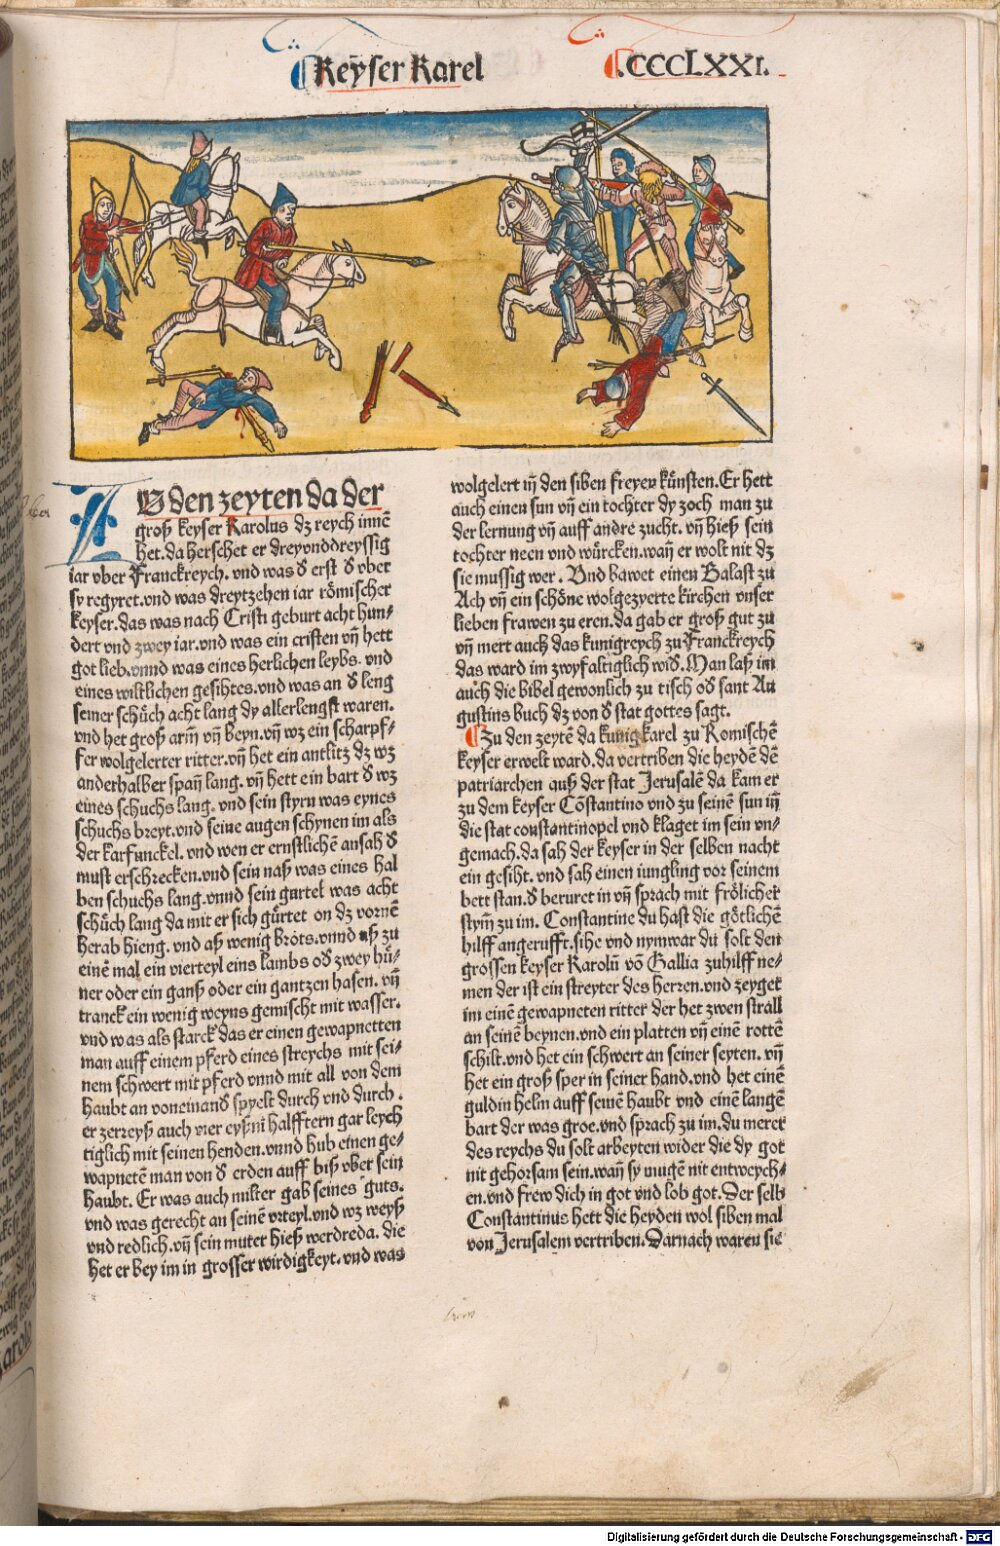 Keyser Karel
.CCCCLXXI.
ZU den zeyten da der
groß keyser Karolus dz reych innē
het. da herschet er dreyvnddreyssig
iar vber Franckreych. vnd was d̄ erst d̄ vber
sy regyret. vnd was dreytzehen iar römischer
keyser. das was nach Cristi geburt acht hun-
dert vnd zwey iar. vnd was ein cristen vn̄ hett
got lieb. vnnd was eines herlichen leybs. vnd
eines wiltlichen gesihtes. vnd was an d̄ leng
seiner schůch acht lang dy allerlengst waren.
vnd het groß arm̄ vn̄ beyn. vn̄ wz ein scharpf-
fer wolgelerter ritter. vn̄ het ein antlitz dz wz
anderhalber span̄ lang. vn̄ hett ein bart d̄ wz
eines schuchs lang. vnd sein styrn was eynes
schuchs breyt. vnd seine augen schynen im als
der karfunckel. vnd wen er ernstlichē ansah d̄
must erschrecken. vnd sein naß was eines hal
ben schuchs lang. vnnd sein gürtel was acht
schůch lang da mit er sich gürtet on dz vornē
herab hieng. vnd aß wenig brots. vnnd aß zu
einē mal ein vierteyl eins lambs od̄ zwey hü-
ner oder ein ganß oder ein gantzen hasen. vn̄
tranck ein wenig weyns gemischt mit wasser.
vnd was als starck das er einen gewapnetten
man auff einem pferd eines streychs mit sei-
nem schwert mit pferd vnnd mit all von dem
haubt an voneinand̄ spyelt durch vnd durch.
er zerreyß auch vier eyßni halfftern gar leych
tiglich mit seinen henden. vnnd hub einen ge-
wapnetē man von d̄ erden auff biß vber sein
haubt. Er was auch milter gab seines guts.
vnd was gerecht an seinē vrteyl. vnd wz weyß
vnd redlich. vn̄ sein muter hieß werdreda. die
het er bey im in grosser wirdigkeyt. vnd was
wolgelert in̄ den siben freyen künsten. Er hett
auch einen sun vn̄ ein tochter dy zoch man zu
der lernung vn̄ auff andre zucht. vn̄ hieß sein
tochter neen vnd würcken. wan̄ er wolt nit dz
sie mussig wer. Vnd bawet einen Balast zu
Ach vn̄ ein schöne wolgezyerte kirchen vnser
lieben frawen zu eren. da gab er groß gut zu
vn̄ mert auch das kunigreych zu Franckreych
das ward im zwyfaltiglich wid̄. Man laß im
auch die bibel gewonlich zu tisch od̄ sant Au
gustins buch dz von d̄ stat gottes sagt.
Zu den zeytē da kunig karel zu Romischē
keyser erwelt ward. da vertriben die heydē dē
patriarchen auß der stat Jerusalē da kam er
zu dem keyser Cōstantino vnd zu seinē sun in̄
die stat constantinopel vnd klaget im sein vn-
gemach. da sah der keyser in der selben nacht
ein gesiht. vnd sah einen iungling vor seinem
bett stan. d̄ beruret in vn̄ sprach mit frölicher
stym̄ zu im. Constantine du hast die götlichē
hilff angerufft. sihe vnd nymwar du solt den
grossen keyser Karolū vō Gallia zuhilff ne-
men der ist ein streyter des herren. vnd zeyget
im einē gewapneten ritter der het zwen strall
an seinē beynen. vnd ein platten vn̄ einē rottē
schilt. vnd het ein schwert an seiner seyten. vn̄
het ein groß sper in seiner hand. vnd het einē
guldin helm auff seinē haubt vnd einē langē
bart der was groe. vnd sprach zu im. du merer
des reychs du solt arbeyten wider die dy got
nit gehorsam sein. wan̄ sy mugē nit entweych-
en. vnd frew dich in got vnd lob got. Der selb
Constantinus hett die heyden wol siben mal
von Jerusalem vertriben. Darnach waren sie
Digitalisierung gefördert durch die Deutsche Forschungsgemeinschaft - DFG